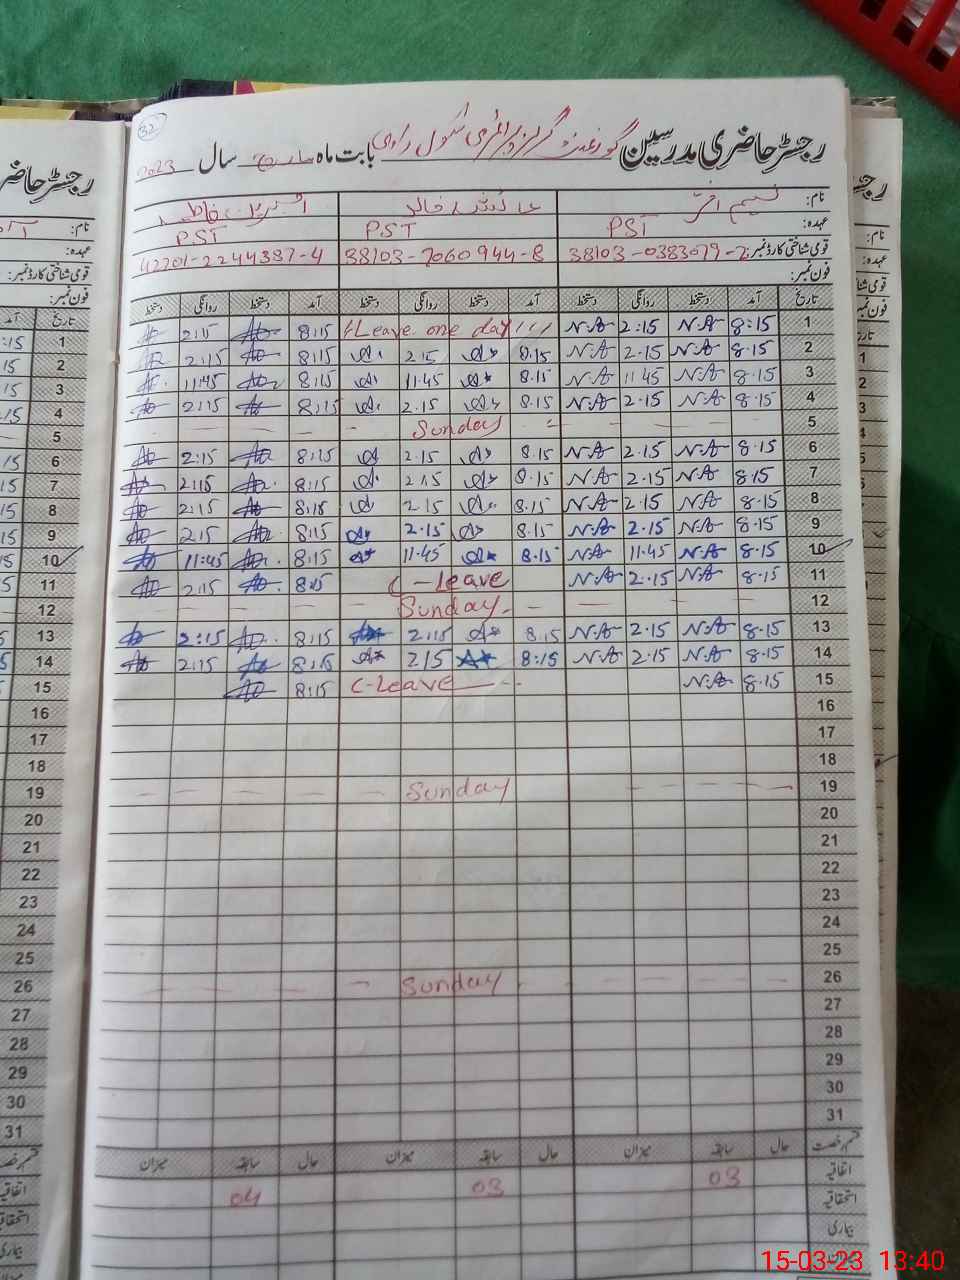 32
رجسٹر حاضری مدرسین گورنمنٹ گرلز پرائمری سکول بابت ماہ مارچ سال 2023
نام: نسیم اختر عائشہ خالد فاطمہ
عہدہ: PST PST PST
قومی شناختی کارڈ نمبر: 38103-0383079-2 38103-7060944-8 42201-2244387-4
فون نمبر:
تاریخ آمد دستخط روانگی دستخط آمد دستخط روانگی دستخط آمد دستخط روانگی دستخط
1 8:15 N.A 2:15 N.A Leave one day 8:15 2:15
2 8.15 N.A 2.15 N.A 8.15 2.15 8:15 2:15
3 8.15 N.A 11.45 N.A 8.15 11.45 8:15 11:45
4 8.15 N.A 2.15 N.A 8.15 2.15 8:15 2:15
5 Sunday
6 8.15 N.A 2.15 N.A 8.15 2.15 8:15 2:15
7 8.15 N.A 2.15 N.A 8.15 2.15 8:15 2:15
8 8.15 N.A 2.15 N.A 8.15 2.15 8:15 2:15
9 8.15 N.A 2.15 N.A 8.15 2.15 8:15 2:15
10 8.15 N.A 11.45 N.A 8.15 11.45 8:15 11:45
11 8.15 N.A 2.15 N.A C-Leave 8:15 2:15
12 Sunday
13 8.15 N.A 2.15 N.A 8.15 2:15 8:15 2:15
14 8.15 N.A 2.15 N.A 8:15 215 8:15 2:15
15 8.15 N.A C-Leave 8:15
16
17
18
19 Sunday
20
21
22
23
24
25
26 Sunday
27
28
29
30
31
قسم رخصت حال سابقہ میزان حال سابقہ میزان حال سابقہ میزان
اتفاقیہ 03 03 04
استحقاقیہ
بیماری
میزان
15-03-23 13:40